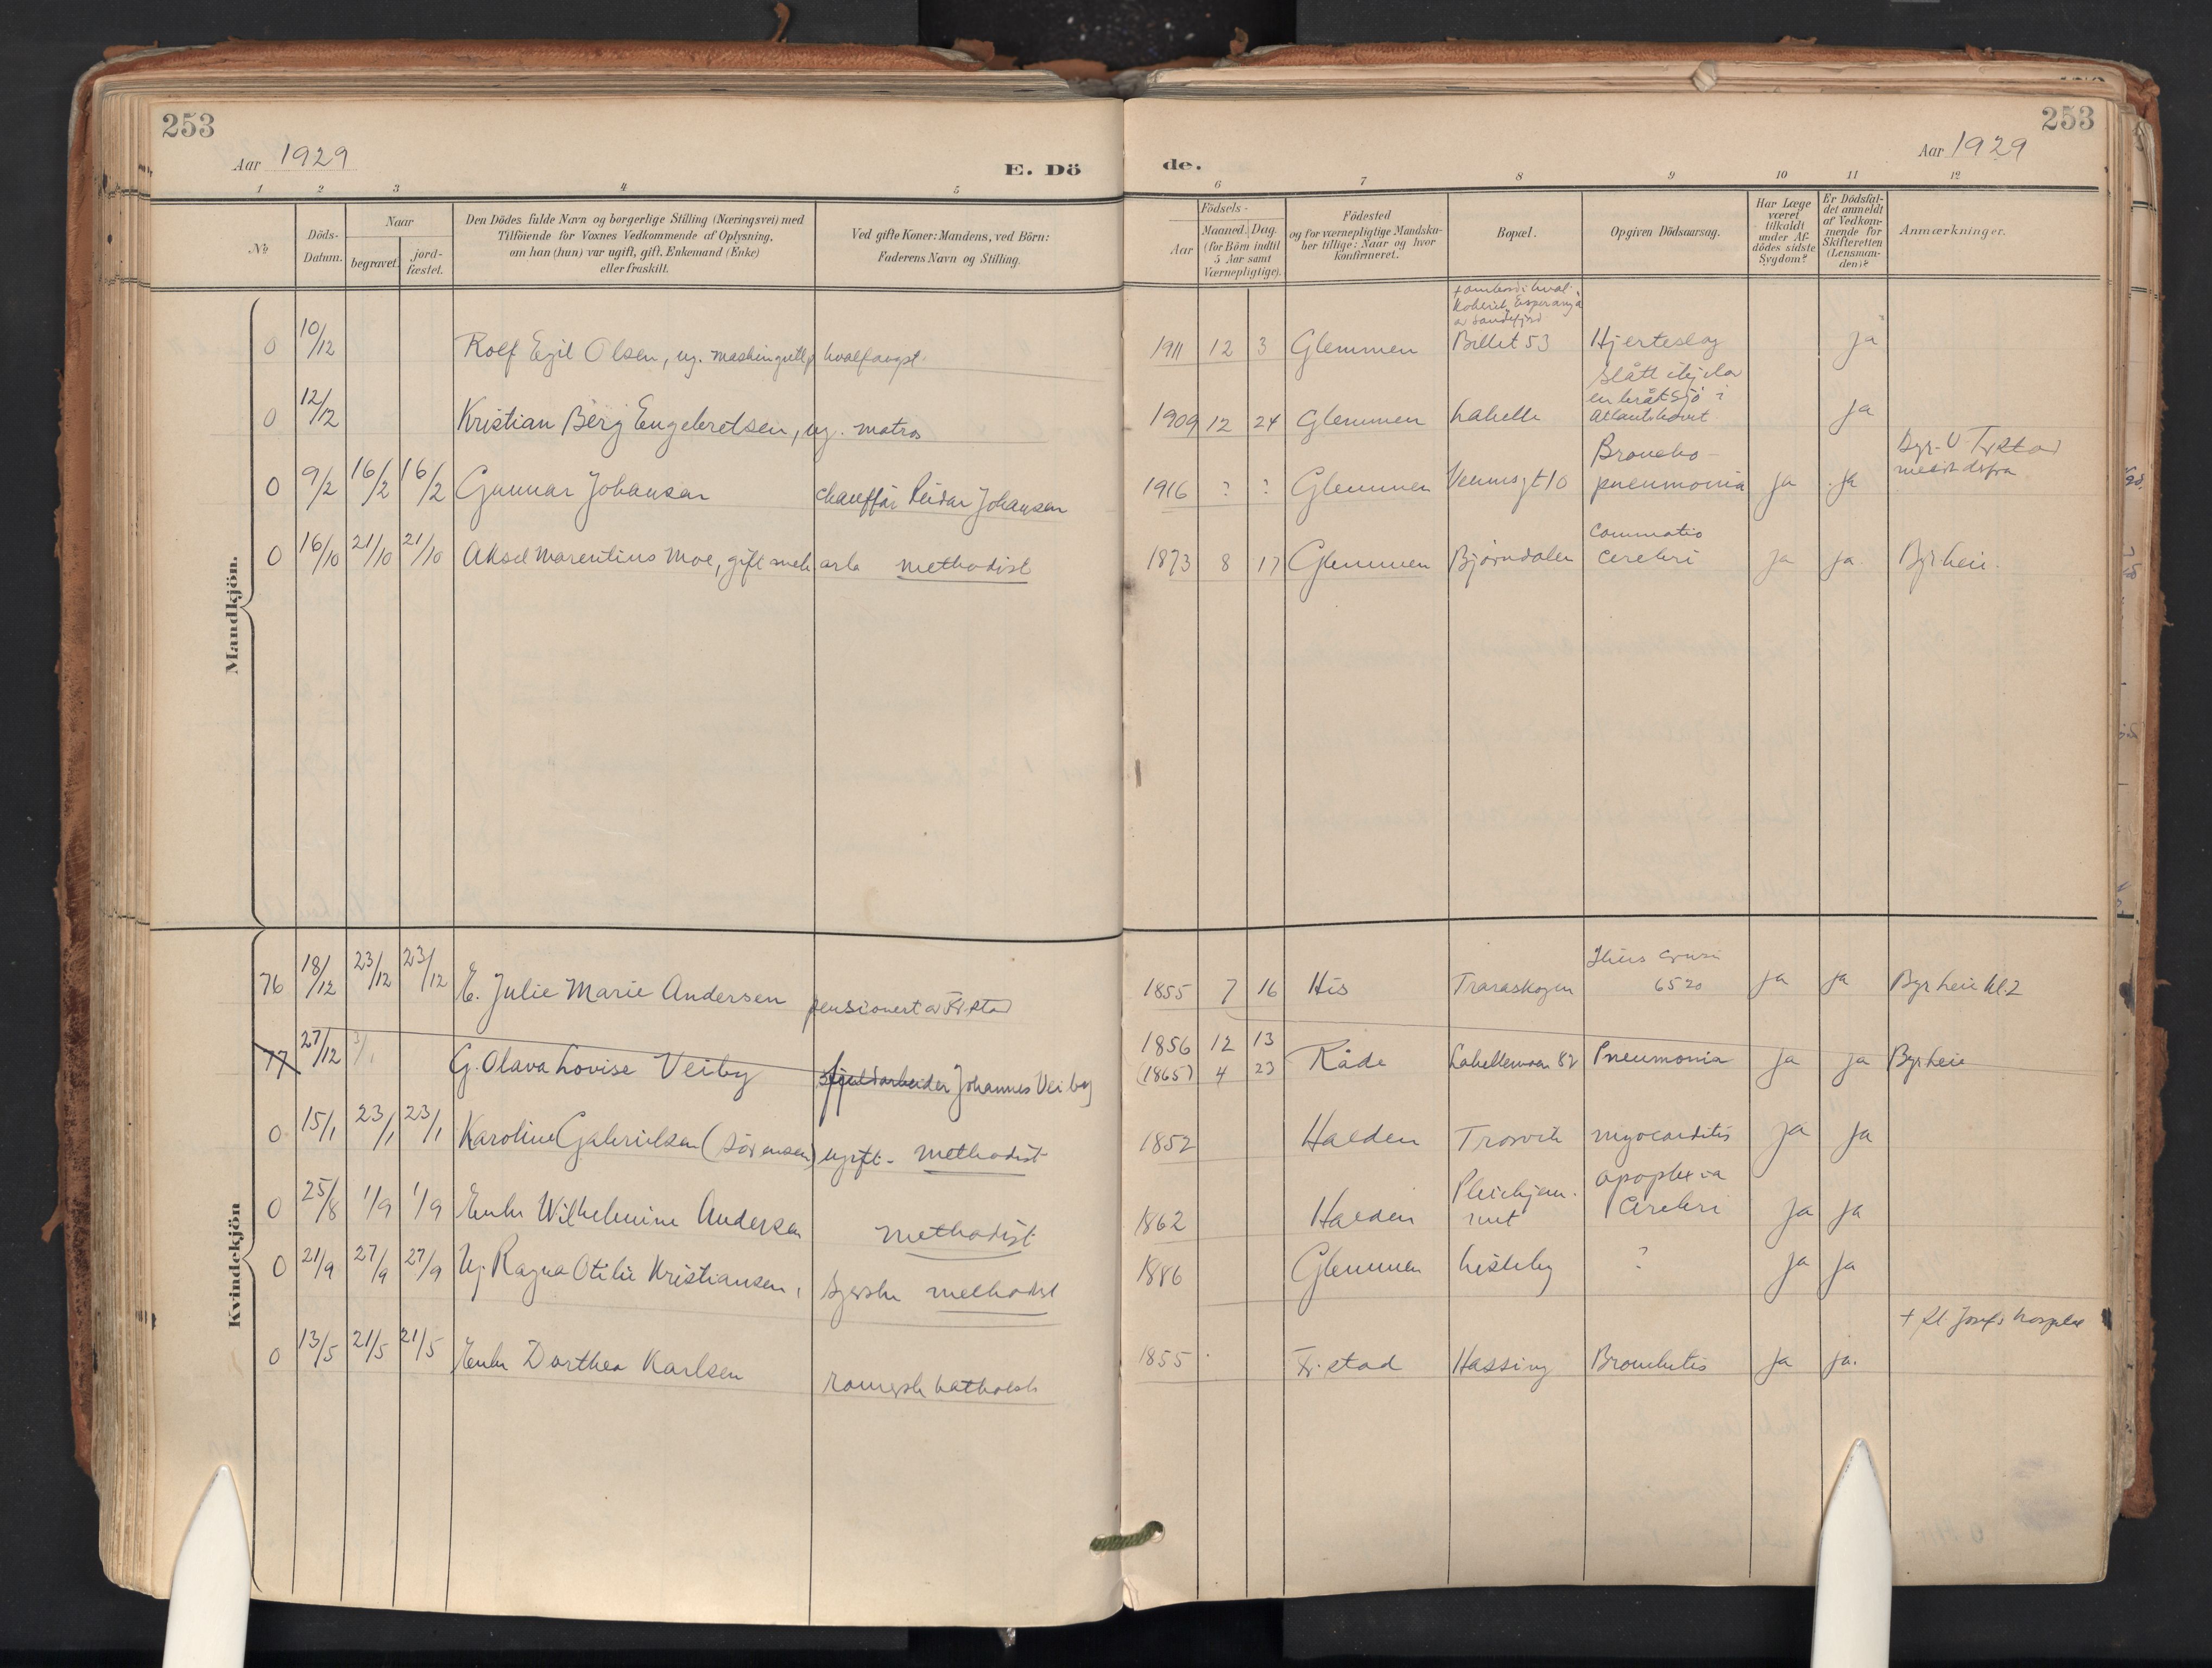 253
253
Aar 1929
E. Dö
de.
Aar 1929
1 2 3 4 5 6 7 8 9 10 11 12
No
Döds-
Datum.
Naar
begravet.
jord-
fæstet.
Den Dödes fulde Navn og borgerlige Stilling (Næringsvei) med
Tilföiende for Voxnes Vedkommende af Oplysning,
om han (hun) var ugift, gift, Enkemand (Enke)
eller fraskilt.
Ved gifte Koner: Mandens, ved Börn:
Faderens Navn og Stilling.
Födsels-
Aar
Maaned. Dag.
(for Börn indtil
5 Aar samt
Værnepligtige).
Födested
og for værnepligtige Mandska-
ber tillige: Naar og hvor
konfirmeret.
Bopæl.
Opgiven Dödsaarsag.
Har Læge
været
tilkaldt
under Af-
dödes sidste
Sygdom?
Er Dödsfal-
det anmeldt
af Vedkom-
mende for
Skifteretten
(Lensman-
den)?
Anmærkninger.
Mandkjön.
Esperanza
av Sandefjord
0 10/12 Rolf Egil Olsen, ug. hvalfangst 1911 12 3 Glemmen Billet 53 Hjerteslag ja
slått ihjel av
en bråtsjö i
0 12/12 Kristian Berg Engebretsen, ug. matros 1909 12 24 Glemmen Labelle Atlanterhavet ja
Broncho-
0 9/2 16/2 16/2 Gunnar Johansen chauffør Reidar Johansen 1916 ? ? Glemmen Venusgt 10 pneumonia ja ja
Commotio
0 16/10 21/10 21/10 Aksel Marentius Moe, gift mek arb methodist 1873 8 17 Glemmen Bjørndalen cerebri ja ja Byrheie.
Kvindekjön
76 18/12 23/12 23/12 E. Julie Marie Andersen pensionert av Fr.stad 1855 7 16 His Traraskogen 6520 ja ja Byrheie kl. 2
77 27/12 3/1 G. Olava Lovise Veiby Johannes Veiby 1856 12 13 Råde Labellemoen 82 Pneumonia ja ja Byrheie
(1865) 4 23
0 15/1 23/1 23/1 Karoline Gabrielsen (Sørensen) ugift - methodist 1852 Halden Trosvik myocarditis ja ja
Pleiehjem- apoplexia
0 25/8 1/9 1/9 Enke Wilhelmine Andersen methodist 1862 Halden met cerebri ja ja
0 21/9 27/9 27/9 Ug. Ragna Otilie Kristiansen, syerske methodist 1886 Glemmen Lisleby ? ja ja
+ St. Josefs hospital
0 13/5 21/5 21/5 Enke Dorthea Karlsen romersk katholsk 1855 Fr.stad Hassing Bronchitis ja ja.